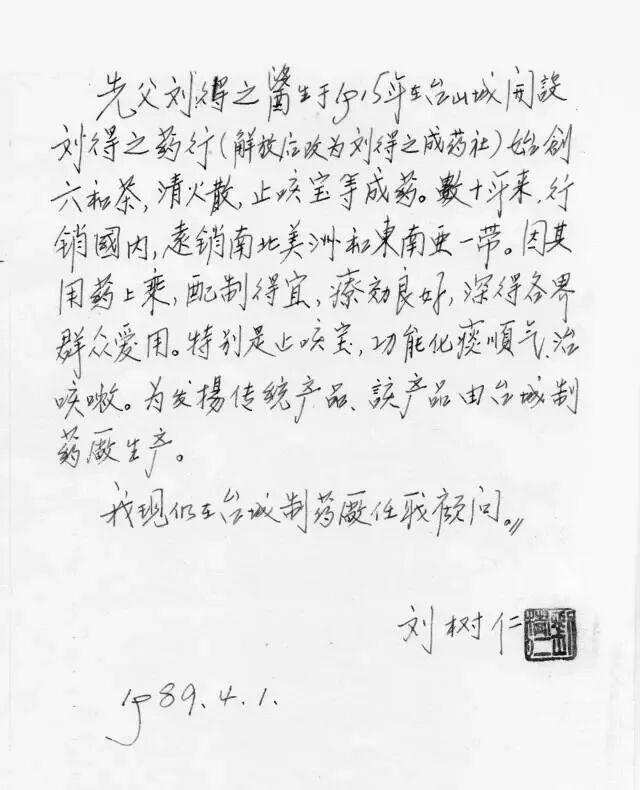 先父刘得之醫生于1915年在台山城開設
刘得之药行(解放后改为刘得之成药社)始創
六和茶,清火散,止咳宝等成药。數十年来,行
销國内,遠销南北美洲和東南亜一带。因其
用药上乘,配制得宜,療効良好,深得各界
群众爱用。特别是止咳宝,功能化痰順气、治
咳嗽。为发揚传统产品、該产品由台城制
药廠生产。
我现仍在台城制药廠任职顾问。
刘树仁
1989.4.1.